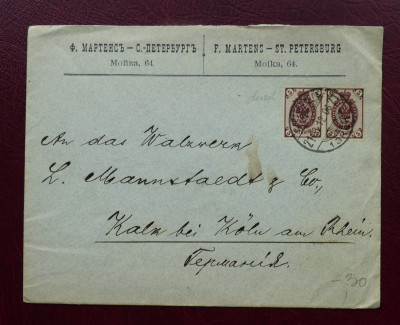 Ф. МАРТЕНСЪ — С.-ПЕТЕРБУРГЪ
Мойка, 64.
F. MARTENS — ST. PETERSBURG
Moïka, 64.
An das Walzwerk
L. Mannstaedt & Co.,
Kalk bei Köln am Rhein.
Германія.
-30